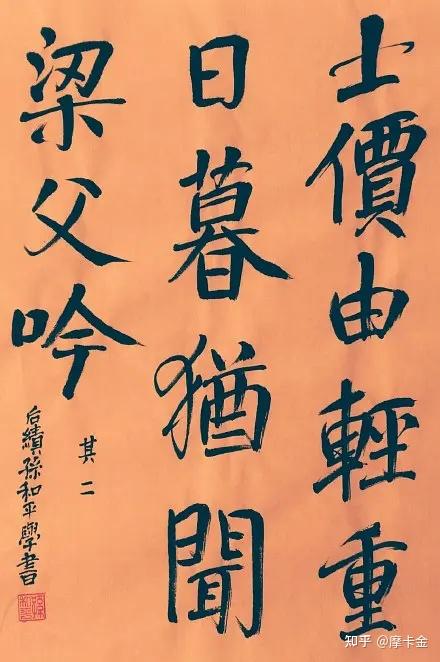 士價由輕重
日暮猶聞
梁父吟
其二
后績孫和平學書
知乎 @摩卡金